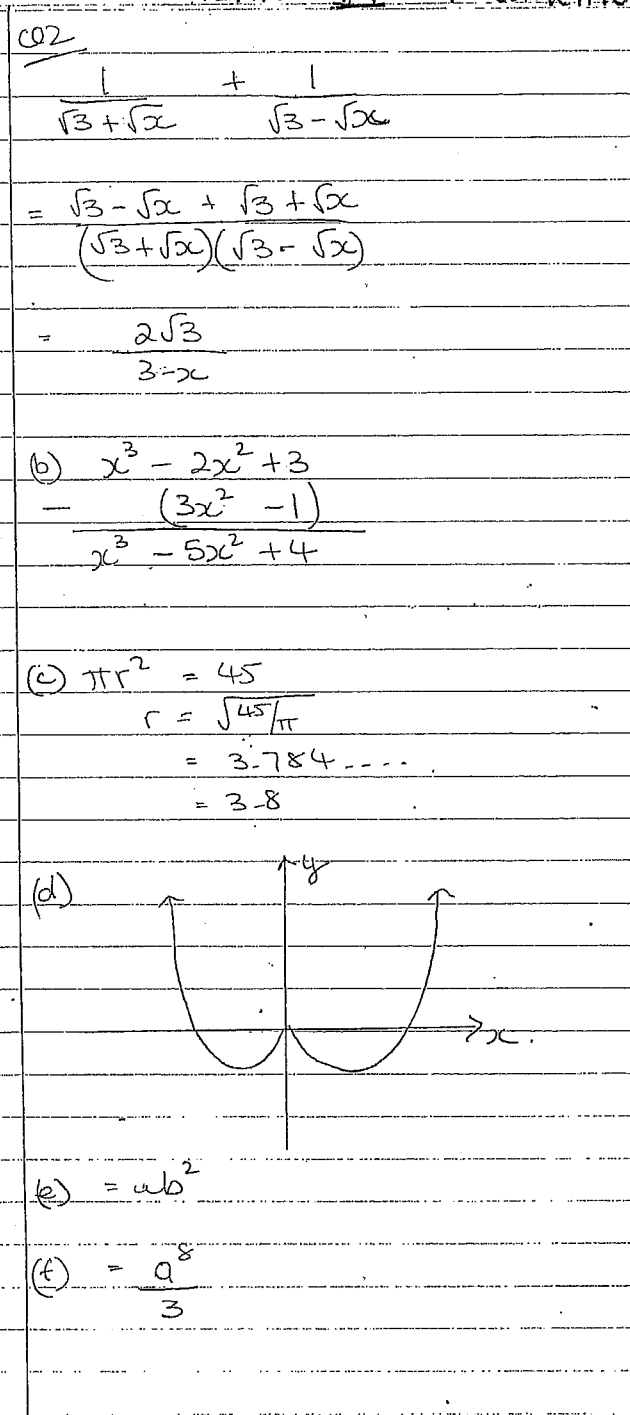 Q2
1/(√3+√x) + 1/(√3-√x)
= (√3-√x + √3+√x)/((√3+√x)(√3-√x))
= 2√3/(3-x)
(b) x³ - 2x² + 3
- (3x² - 1)
x³ - 5x² + 4
(c) πr² = 45
r = √45/π
= 3.784....
= 3.8
(d) y
x.
(e) = ab²
(f) = a⁸/3